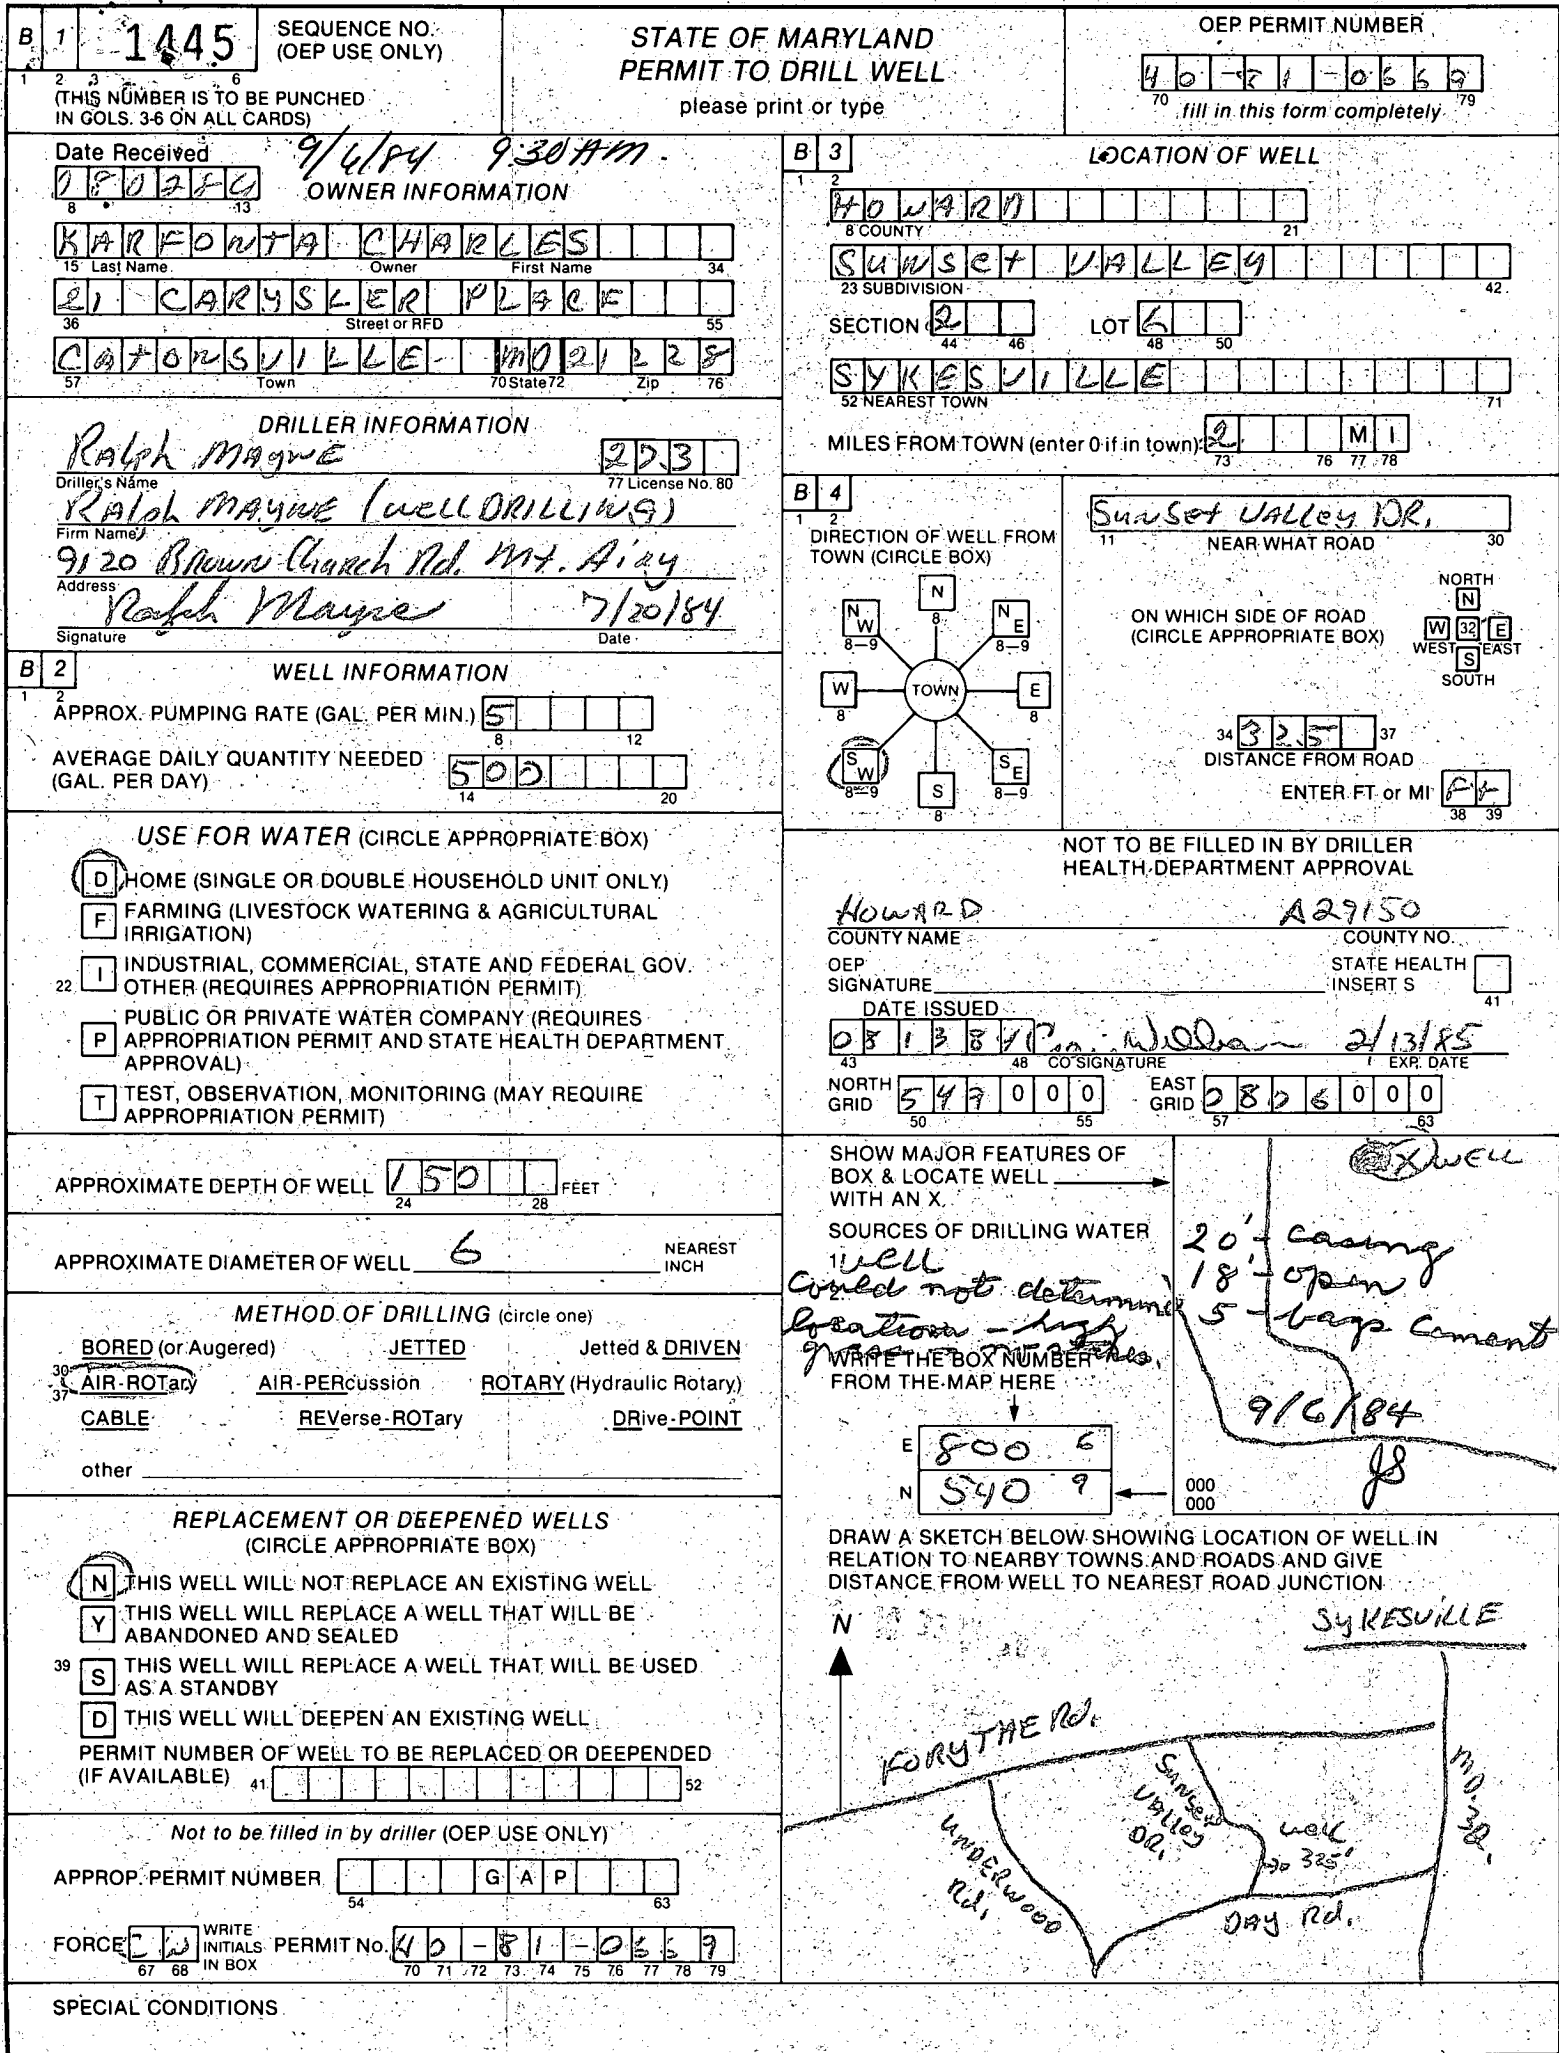 B 1 1445 SEQUENCE NO. (OEP USE ONLY)
1 2 3 6
(THIS NUMBER IS TO BE PUNCHED
IN COLS. 3-6 ON ALL CARDS)
STATE OF MARYLAND
PERMIT TO DRILL WELL
please print or type
OEP PERMIT NUMBER
70 79
fill in this form completely
Date Received 9/6/84 9:30 AM.
8 13
OWNER INFORMATION
KARFONTA CHARLES
15 Last Name Owner First Name 34
21 CARYSLER PLACE
36 Street or RFD 55
CATONSVILLE MD 21228
57 Town 70 State 72 Zip 76
DRILLER INFORMATION
Ralph MAYNE 273
Driller's Name 77 License No. 80
Ralph MAYNE (WELL DRILLING)
Firm Name
9120 Brown Church Rd. Mt. Airy
Address
Ralph Mayne 7/20/84
Signature Date
B 2 WELL INFORMATION
1 2
APPROX. PUMPING RATE (GAL. PER MIN.) 5
8 12
AVERAGE DAILY QUANTITY NEEDED
(GAL. PER DAY) 500
14 20
USE FOR WATER (CIRCLE APPROPRIATE BOX)
D HOME (SINGLE OR DOUBLE HOUSEHOLD UNIT ONLY)
F FARMING (LIVESTOCK WATERING & AGRICULTURAL
IRRIGATION)
22 I INDUSTRIAL, COMMERCIAL, STATE AND FEDERAL GOV.
OTHER (REQUIRES APPROPRIATION PERMIT)
P PUBLIC OR PRIVATE WATER COMPANY (REQUIRES
APPROPRIATION PERMIT AND STATE HEALTH DEPARTMENT
APPROVAL)
T TEST, OBSERVATION, MONITORING (MAY REQUIRE
APPROPRIATION PERMIT)
APPROXIMATE DEPTH OF WELL 150 FEET
24 28
APPROXIMATE DIAMETER OF WELL 6 NEAREST
INCH
METHOD OF DRILLING (circle one)
BORED (or Augered) JETTED Jetted & DRIVEN
30 37 AIR-ROTary AIR-PERcussion ROTARY (Hydraulic Rotary)
CABLE REVerse-ROTary DRive-POINT
other
REPLACEMENT OR DEEPENED WELLS
(CIRCLE APPROPRIATE BOX)
N THIS WELL WILL NOT REPLACE AN EXISTING WELL
Y THIS WELL WILL REPLACE A WELL THAT WILL BE
ABANDONED AND SEALED
39 S THIS WELL WILL REPLACE A WELL THAT WILL BE USED
AS A STANDBY
D THIS WELL WILL DEEPEN AN EXISTING WELL
PERMIT NUMBER OF WELL TO BE REPLACED OR DEEPENDED
(IF AVAILABLE) 41 52
Not to be filled in by driller (OEP USE ONLY)
APPROP. PERMIT NUMBER G A P
54 63
FORCE WRITE
INITIALS
IN BOX PERMIT No.
67 68 70 71 72 73 74 75 76 77 78 79
SPECIAL CONDITIONS
B 3 LOCATION OF WELL
1 2
HOWARD
8 COUNTY 21
SUNSET VALLEY
23 SUBDIVISION 42
SECTION 2 LOT 6
44 46 48 50
SYKESVILLE
52 NEAREST TOWN 71
MILES FROM TOWN (enter 0 if in town) 2 M I
73 76 77 78
B 4
1 2
DIRECTION OF WELL FROM
TOWN (CIRCLE BOX)
N
8
N W N E
8-9 8-9
W TOWN E
8 8
S W S E
8-9 8-9
S
8
SunSet VAlley DR.
11 NEAR WHAT ROAD 30
ON WHICH SIDE OF ROAD
(CIRCLE APPROPRIATE BOX)
NORTH
N
W 32 E
WEST EAST
S
SOUTH
34 325 37
DISTANCE FROM ROAD
ENTER FT or MI Ft
38 39
NOT TO BE FILLED IN BY DRILLER
HEALTH DEPARTMENT APPROVAL
HOWARD A29150
COUNTY NAME COUNTY NO.
OEP
SIGNATURE STATE HEALTH
INSERT S
41
DATE ISSUED
081384 2/13/85
43 48 CO SIGNATURE EXP. DATE
NORTH
GRID 549000 EAST
GRID 0806000
50 55 57 63
SHOW MAJOR FEATURES OF
BOX & LOCATE WELL
WITH AN X
X WELL
SOURCES OF DRILLING WATER
1 well
2
Could not determine
location - high
grass
20' - casing
18' - open
5 - bags Cement
9/6/84
JS
WRITE THE BOX NUMBER
FROM THE MAP HERE
E 800 6
N 540 9
000
000
DRAW A SKETCH BELOW SHOWING LOCATION OF WELL IN
RELATION TO NEARBY TOWNS AND ROADS AND GIVE
DISTANCE FROM WELL TO NEAREST ROAD JUNCTION
N
SYKESVILLE
FORYTHE Rd.
SUNSET
VALLEY
DR.
well
325'
MD. 32.
UNDERWOOD
Rd.
DAY Rd.